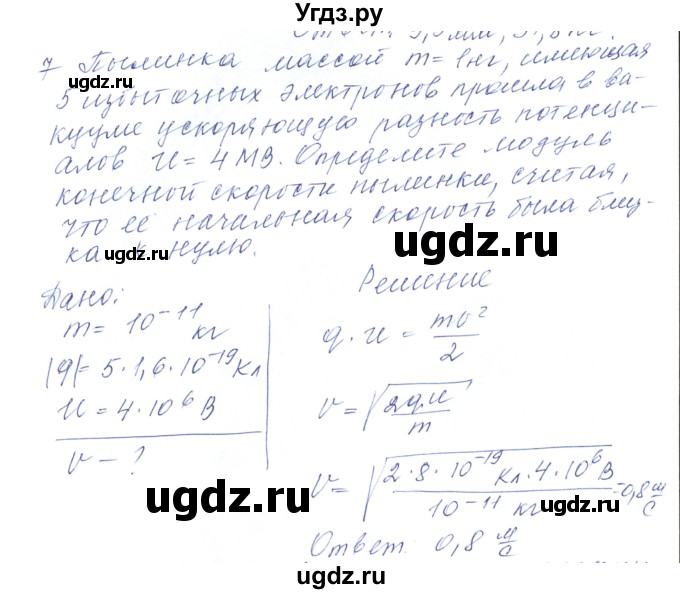 Угдз.ру
7 Пылинка массой m = 1 нг, имеющая
5 избыточных электронов прошла в ва-
кууме ускоряющую разность потенци-
алов U = 4 МВ. Определите модуль
конечной скорости пылинки, считая,
что её начальная скорость была близ-
ка к нулю.
ugdz.ru
ugdz.ru
ugdz.ru
Дано:
m = 10⁻¹¹ кг
|q| = 5·1,6·10⁻¹⁹ Кл
U = 4·10⁶ В
v - ?
Решение
q·U = mv²/2
v = √(2qU/m)
v = √(2·8·10⁻¹⁹ Кл·4·10⁶ В / 10⁻¹¹ кг) = 0,8 м/с
Ответ: 0,8 м/с
ugdz.ru
ugdz.ru
ugdz.ru
ugdz.ru